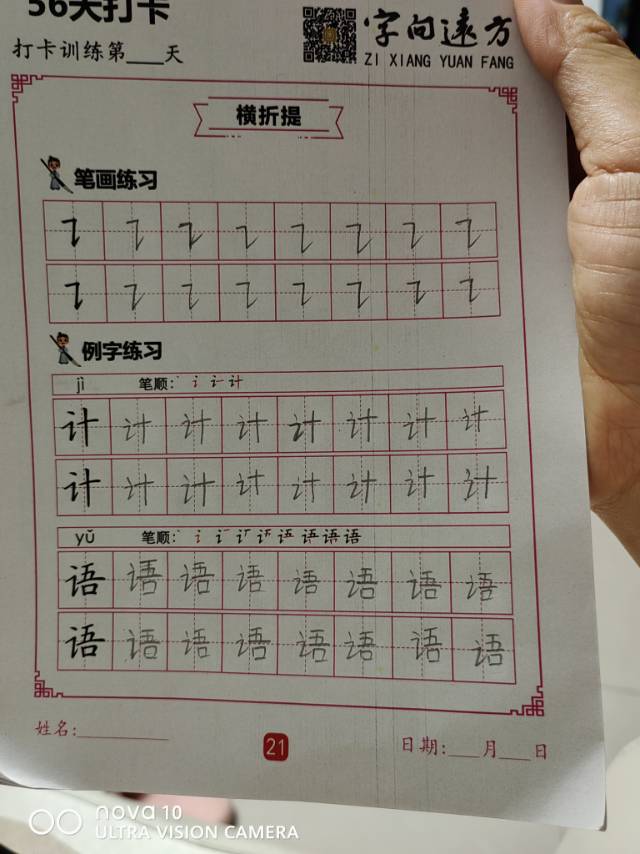 56天打卡
字向远方
打卡训练第___天
ZI XIANG YUAN FANG
横折提
笔画练习
例字练习
jì 笔顺:
计 计 计 计 计 计 计 计
计 计 计 计 计 计 计 计
yǔ 笔顺:
语 语 语 语 语 语 语 语
语 语 语 语 语 语 语 语
姓名:
21
日期:___月___日
nova 10
ULTRA VISION CAMERA